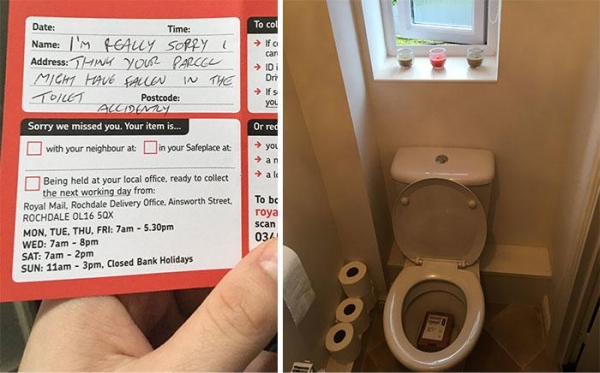 Date: Time:
Name: I'M REALLY SORRY I
Address: THINK YOUR PARCEL
MIGHT HAVE FALLEN IN THE
TOILET Postcode:
ACCIDENTLY
Sorry we missed you. Your item is...
with your neighbour at: in your Safeplace at:
Being held at your local office, ready to collect
the next working day from:
Royal Mail, Rochdale Delivery Office, Ainsworth Street,
ROCHDALE OL16 5QX
MON, TUE, THU, FRI: 7am - 5.30pm
WED: 7am - 8pm
SAT: 7am - 2pm
SUN: 11am - 3pm, Closed Bank Holidays
To col
If
car
ID
Dri
If s
you
Or rec
you
a n
a l
To bo
roya
scan
034